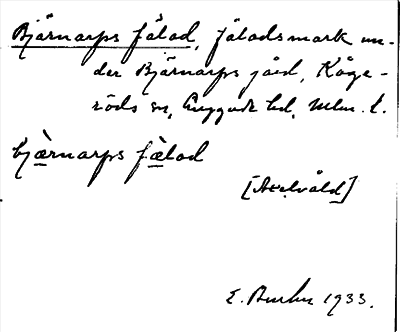 Bjärnarps fälad, fäladsmark un-
der Bjärnarps jord, Kåge-
röds sn, Luggude hd, Mlm. l.
bjæ̀rnarps fæ̀lad
[Axelvåld]
E. 1933.